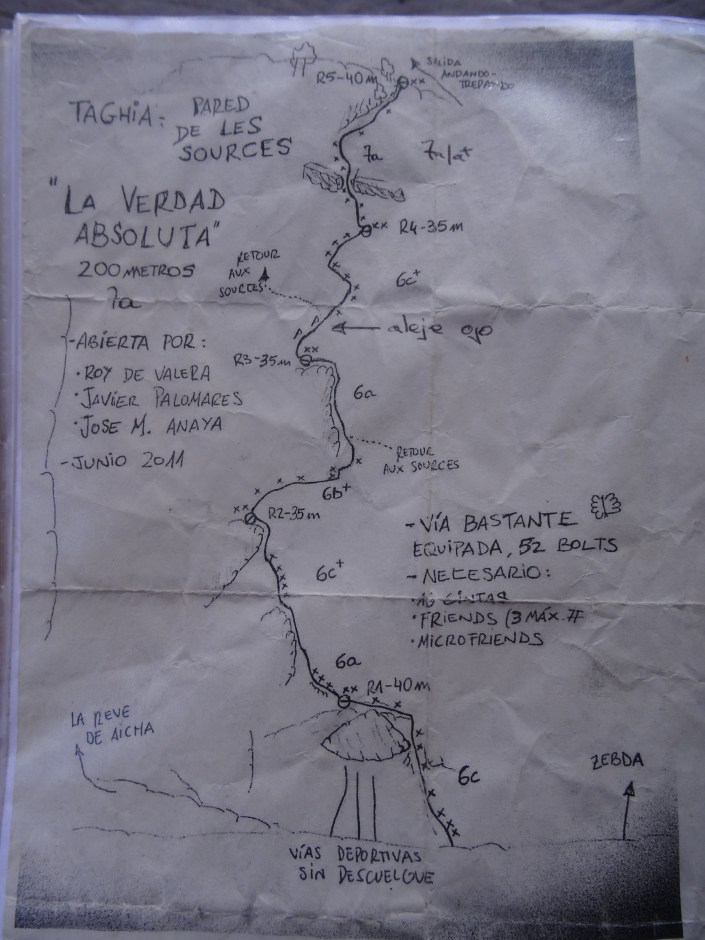 R5-40m
SALIDA
ANDANDO-
TREPANDO
TAGHIA: PARED
DE LES
SOURCES
7a
7a/a+
"LA VERDAD
ABSOLUTA"
200 METROS
7a
R4-35m
RETOUR
AUX
SOURCES
6c+
aleje ojo
-ABIERTA POR:
·ROY DE VALERA
·JAVIER PALOMARES
·JOSE M. ANAYA
-JUNIO 2011
R3-35m
6a
RETOUR
AUX SOURCES
6b+
R2-35m
-VÍA BASTANTE
EQUIPADA, 52 BOLTS
-NECESARIO:
CINTAS
·FRIENDS (3 MÁX.
·MICROFRIENDS
6c+
6a
R1-40m
LA REVE
DE AICHA
6c
ZEBDA
VÍAS DEPORTIVAS
SIN DESCUELGUE